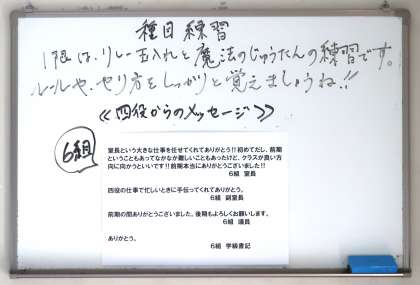 種目練習
1限は、リレー玉入れと魔法のじゅうたんの練習です。
ルールや、やり方をしっかりと覚えましょうね!!
≪四役からのメッセージ≫
6組
室長という大きな仕事を任せてくれてありがとう!!初めてだし、前期
ということもあってなかなか難しいこともあったけど、クラスが良い方
向に向かうといいです!!前期本当にありがとうございました!!
6組 室長
四役の仕事で忙しいときに手伝ってくれてありがとう。
6組 副室長
前期の間ありがとうございました。後期もよろしくお願いします。
6組 議員
ありがとう。
6組 学級書記